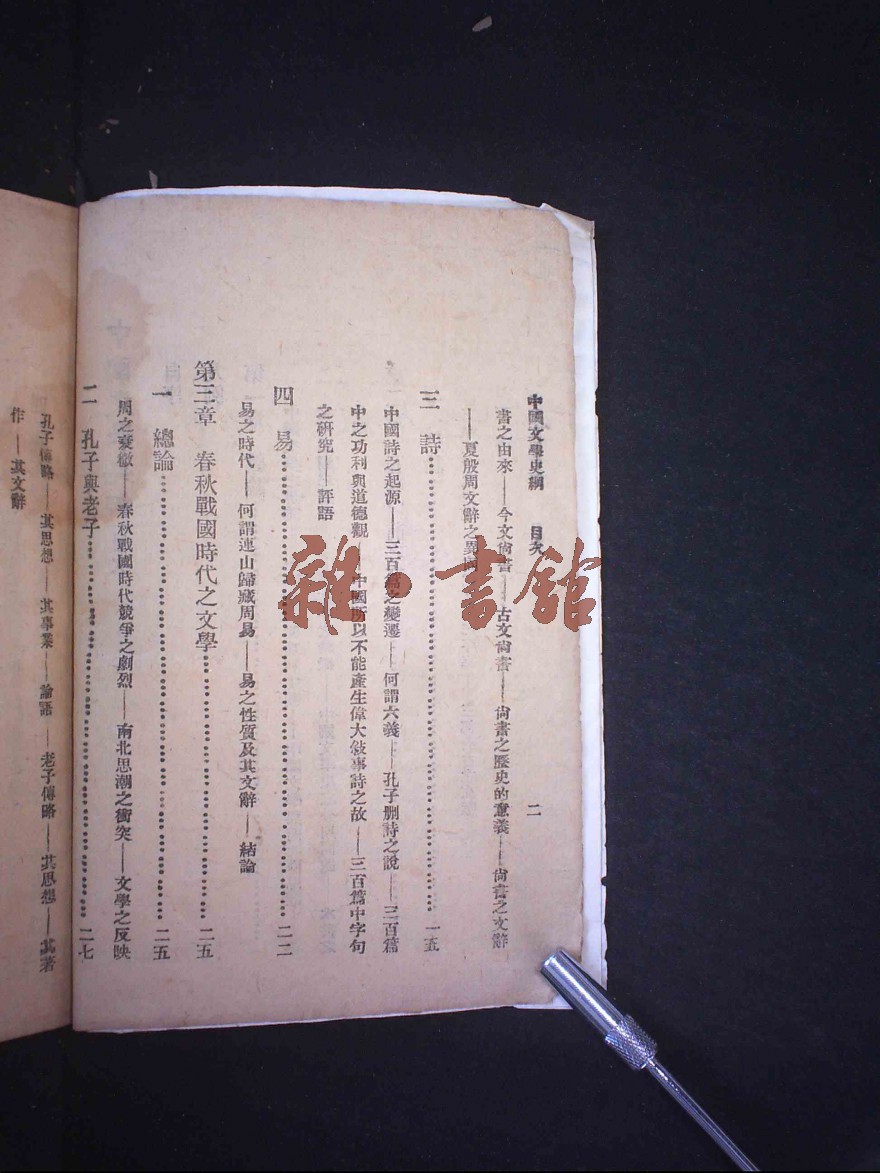 中國文學史綱 目次 二
書之由來——今文尚書——古文尚書——尚書之歷史的意義——尚書之文辭
——夏殷周文辭之異同
三 詩 一五
中國詩之起源——三百篇之變遷——何謂六義——孔子刪詩之說——三百篇
中之功利與道德觀——中國所以不能產生偉大敍事詩之故——三百篇中字句
之研究——評語
四 易 二二
易之時代——何謂連山歸藏周易——易之性質及其文辭——結論
第三章 春秋戰國時代之文學 二五
一 總論 二五
周之衰微——春秋戰國時代競爭之劇烈——南北思潮之衝突——文學之反映
二 孔子與老子 二七
孔子傳略——其思想——其事業——論語——老子傳略——其思想——其著
作——其文辭
雜·書館